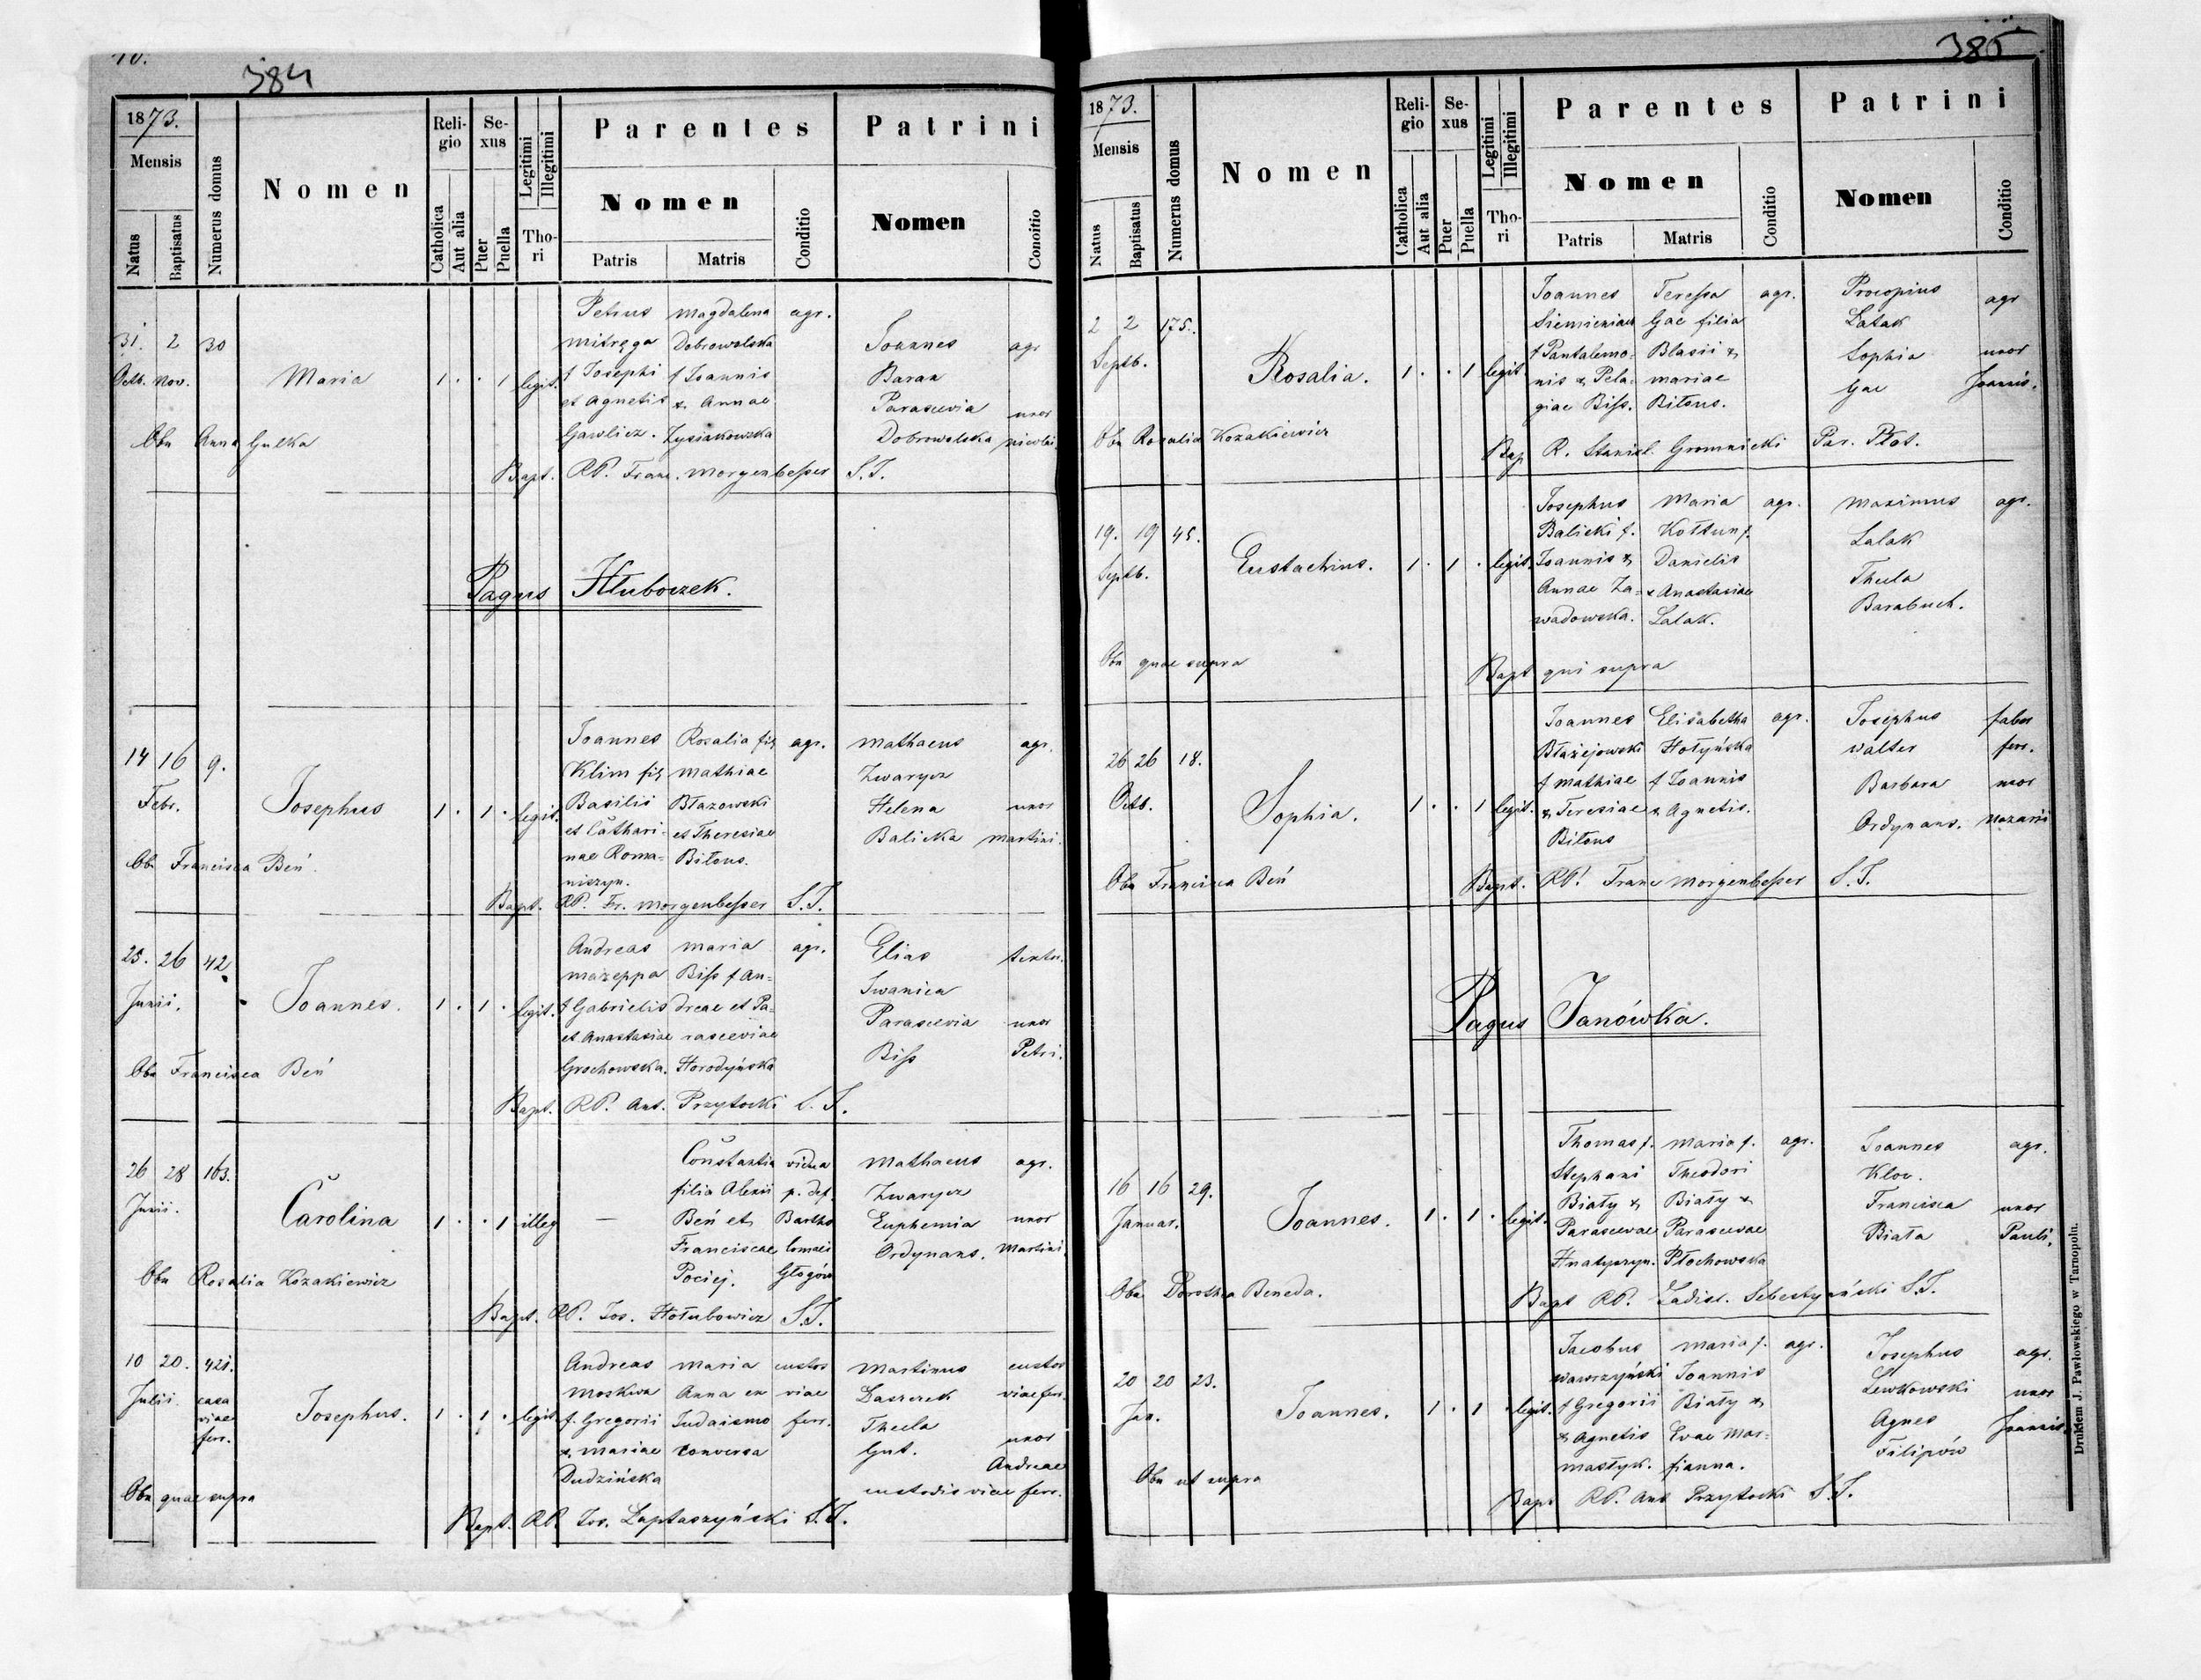 10.
384
1873.
Mensis
Natus
Baptisatus
Numerus domus
Nomen
Religio
Catholica
Aut alia
Sexus
Puer
Puella
Legitimi
Illegitimi
Thori
Parentes
Nomen
Patris
Matris
Conditio
Patrini
Nomen
Conditio
31. 2 30
Octb. Nov.
Maria
1 . . 1 legit.
Petrus Magdalena agr.
Mitręga Dobrowolska
f Josephi f Joannis
et Agnetis & Annae
Gawlicz. Zysiakowska
Joannes agr
Baran
Parascevia uxor
Dobrowolska Nicolai
Obs Anna Gulka
Bapt. RP. Franc. Morgenbesser S.T.
Pagus Hłuboczek.
14 16 9.
Febr.
Josephus
1 . 1 . legit.
Joannes Rosalia fil agr.
Klim fil Mathiae
Basilii Błazowski
et Cathari- et Theresiae
nae Roma- Bitous.
niszyn.
Mathaeus agr.
Zwarycz
Helena uxor
Balicka Martini.
Obs Francisca Beń
Bapt. RP. Fr. Morgenbesser S.T.
25. 26 42
Junii.
Joannes.
1 . 1 . legit.
Andreas Maria agr.
Mazeppa Biss f An-
f Gabrielis dreae et Pa-
et Anastasiae rasceviae
Grochowska. Horodyńska
Elias
Iwanica
Parascevia uxor
Biss Petri.
Obs Francisca Beń
Bapt. RP. Ant. Przytocki S.T.
26 28 163.
Junii.
Carolina
1 . . 1 illeg
—
Constantia vidua
filia Alexii p. def.
Beń et Bartho
Franciscae lomaei
Pociej. Głogów
Mathaeus agr.
Zwarycz
Euphemia uxor
Ordynans. Martini.
Obs Rosalia Kozakiewicz
Bapt. RP. Jos. Hołubowicz S.T.
10 20. 421.
Julii casa
viae
ferr.
Josephus.
1 . 1 . legit.
Andreas Maria custos
Moskwa Anna ex viae
f. Gregorii Judaismo ferr.
& Mariae conversa
Dudzińska
Martinus custos
Daszczek viae ferr.
Thecla
Gut. uxor
Andreae
custodis viae ferr.
Obs quae supra
Bapt. RP. Jos. Łaptaszyński S.T.
385
1873.
Mensis
Natus
Baptisatus
Numerus domus
Nomen
Religio
Catholica
Aut alia
Sexus
Puer
Puella
Legitimi
Illegitimi
Thori
Parentes
Nomen
Patris
Matris
Conditio
Patrini
Nomen
Conditio
2 2 175.
Septb.
Rosalia.
1 . . 1 legit.
Joannes Teressa agr.
Siemieniaus Gac filia
f Pantalemo- Blasii &
nis & Pela- Mariae
giae Biss. Bitous.
Procopius agr
Łatak
Sophia uxor
Gac Joannis.
Obs Rosalia Kozakiewicz
Bap R. Stanisl. Gromnicki Par. Płot.
19. 19 45.
Septb.
Eustachius.
1 . 1 . legit.
Josephus Maria agr.
Balicki f. Kołtun f.
Joannis & Danielis
Annae Za- & Anastasiae
wadowska. Łalak.
Maximus agr.
Łalak
Thecla
Barabuch.
Obs quae supra
Bapt qui supra
26 26 18.
Octb.
Sophia.
1 . . 1 legit.
Joannes Elisabetha agr.
Błażejowski Hołyńska
f Mathiae f Joannis
& Teresiae & Agnetis.
Bitous
Josephus faber
Walter ferr.
Barbara uxor
Ordynans. Nazarii
Obs Francisca Beń
Bapt. RP. Franc Morgenbesser S.T.
Pagus Janówka.
16 16 29.
Januar.
Joannes.
1 . 1 . legit.
Thomas f. Maria f. agr.
Stephani Theodori
Biały & Biały &
Parascevae Parascevae
Hnatyszyn. Płochowska
Joannes agr.
Klov.
Francisca uxor
Biała Pauli.
Obs Dorothea Beneda.
Bapt RP. Ladisl. Sebestyański S.T.
20 20 23.
Jan.
Joannes.
1 . 1 . legit.
Jacobus Maria f. agr.
Wawrzyński Joannis
f Gregorii Biały &
& Agnetis Evae Mar-
Masłyk. fianna.
Josephus agr.
Lewkowski
Agnes uxor
Filipów Joannis.
Obs ut supra
Bapt RP. Ant Przytocki S.T.
Drukiem J. Pawłowskiego w Tarnopolu.